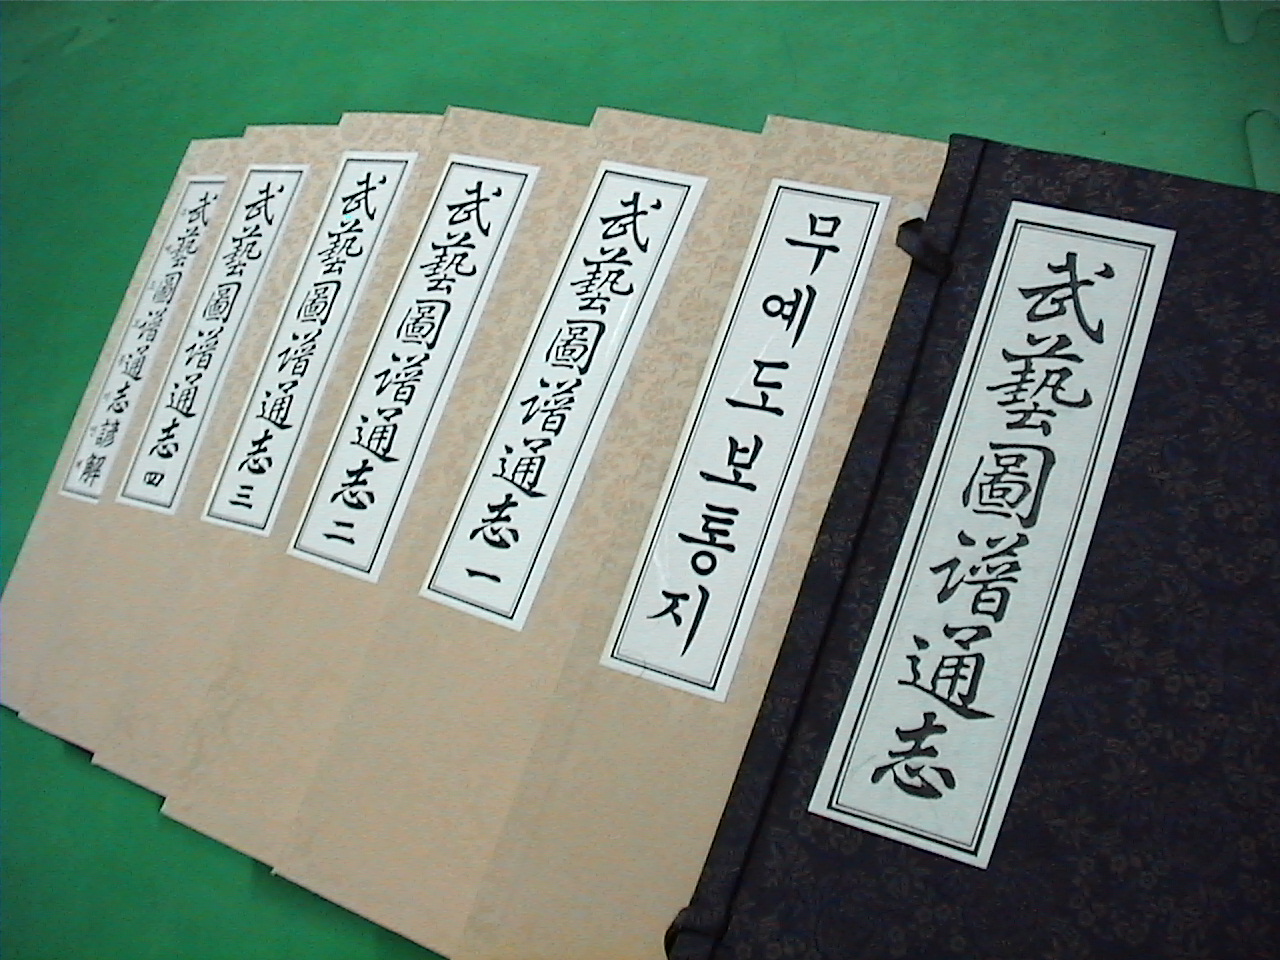 武藝圖譜通志諺解
武藝圖譜通志四
武藝圖譜通志三
武藝圖譜通志二
武藝圖譜通志一
무예도보통지
武藝圖譜通志